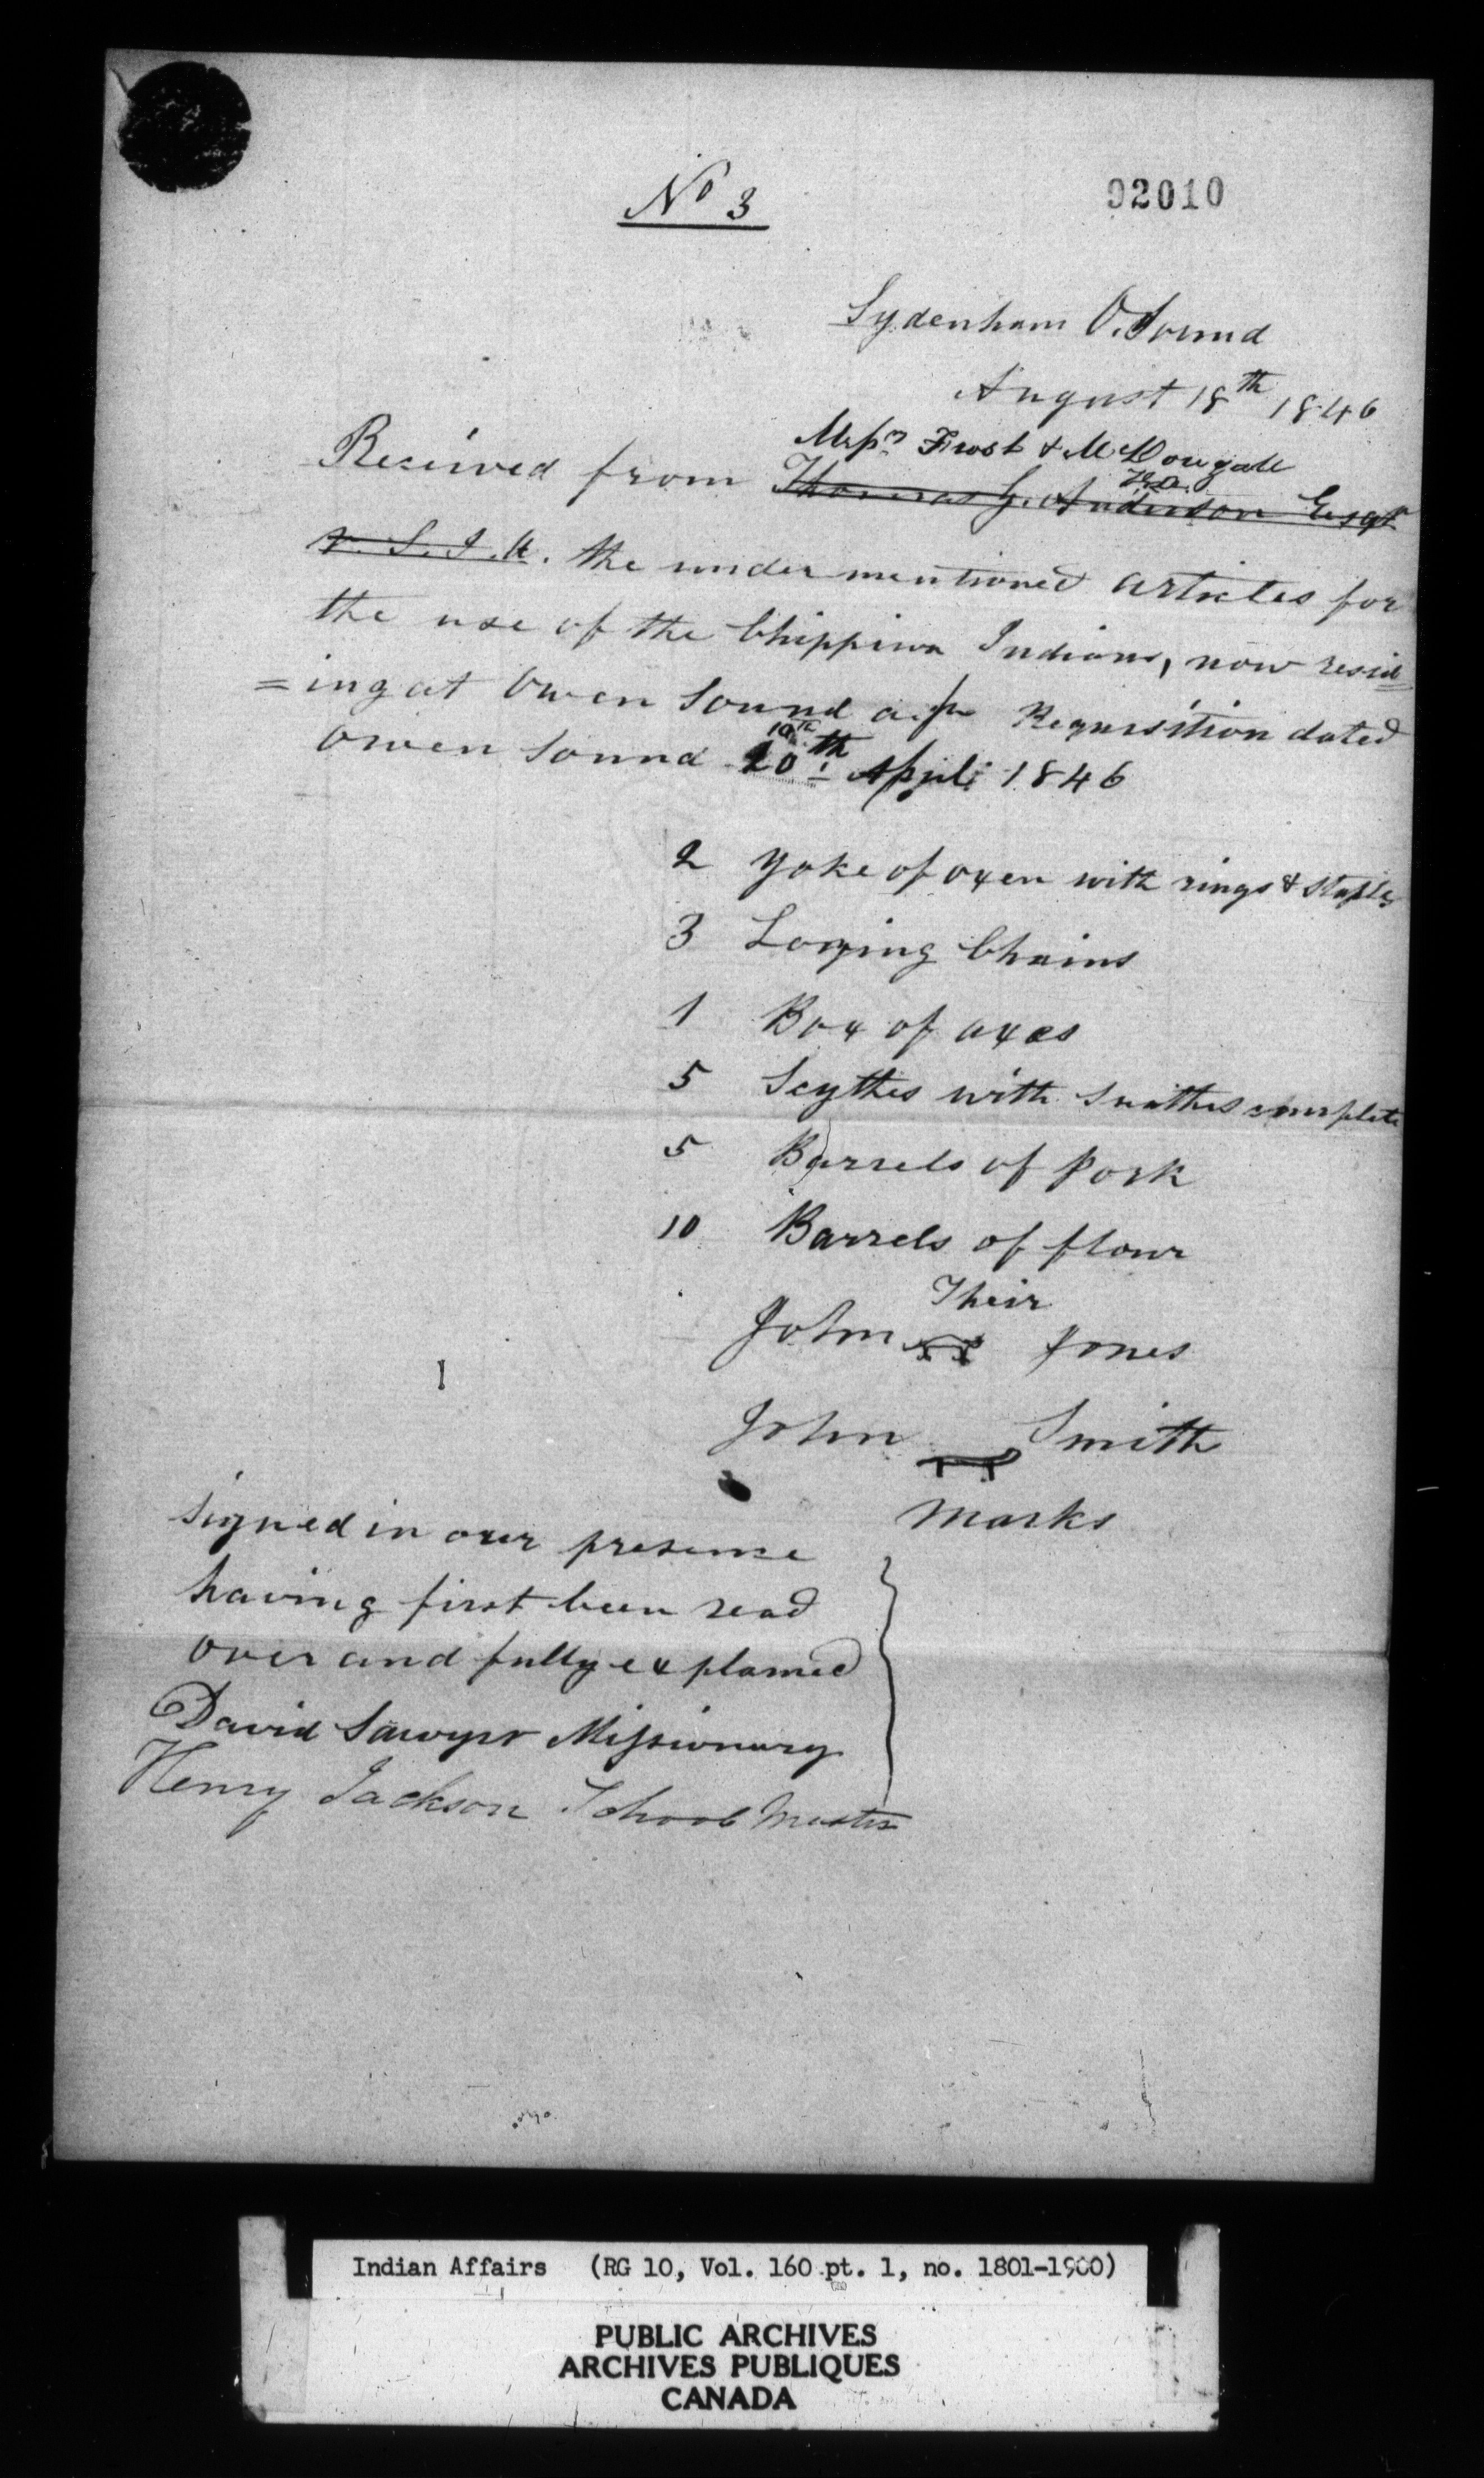 No 3
92010
Sydenham O. Sound
August 18th 1846
Messrs Frost & McDougall
Received from Thomas G. Anderson Esqr
V. S. I. A. the undermentioned articles for
the use of the Chippiwa Indians, now resid=
=ing at Owen Sound as pr Requisition dated
10th
Owen Sound 20th April 1846
2 Yoke of oxen with rings & staples
3 Loging Chains
1 Box of axes
5 Scythes with Snathes complete
5 Barrels of Pork
10 Barrels of flour
Their
John Jones
John Smith
Marks
Signed in our presence
having first been read
over and fully explained
David Sawyer Missionary
Henry Jackson School Master
Indian Affairs (RG 10, Vol. 160 pt. 1, no. 1801-1900)
PUBLIC ARCHIVES
ARCHIVES PUBLIQUES
CANADA